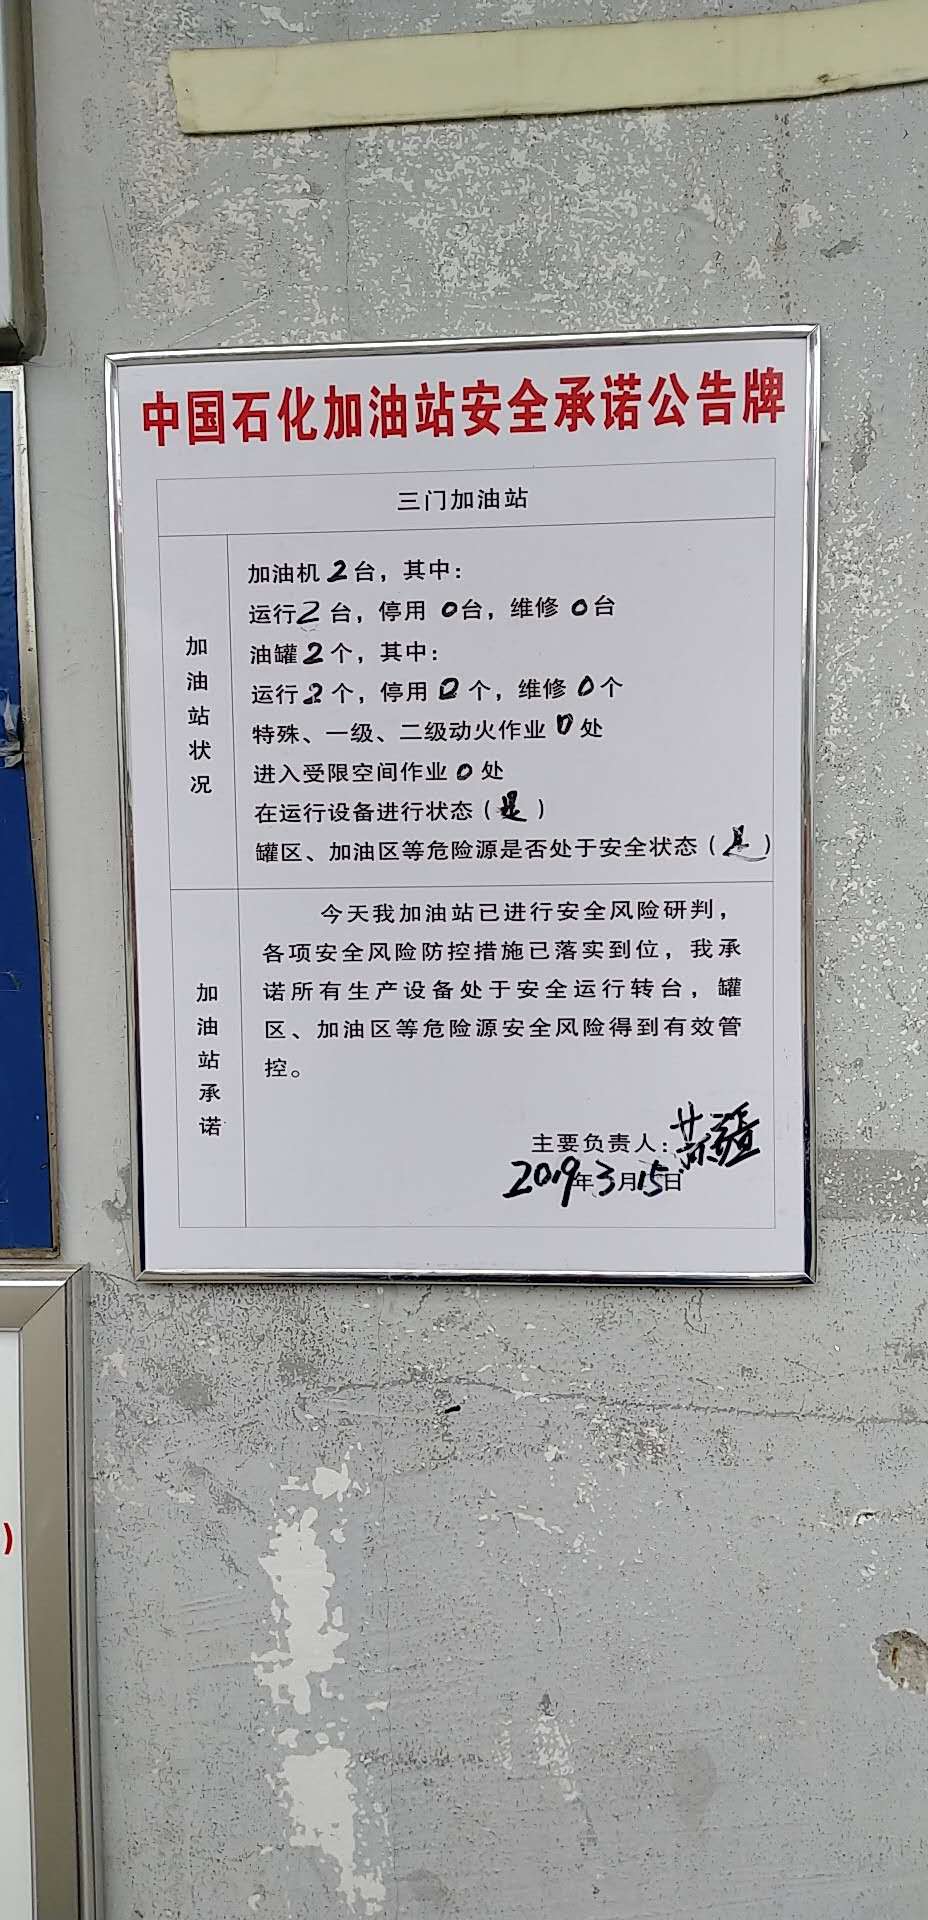 中国石化加油站安全承诺公告牌
三门加油站
加油站状况
加油机2台，其中：
运行2台，停用0台，维修0台
油罐2个，其中：
运行2个，停用0个，维修0个
特殊、一级、二级动火作业0处
进入受限空间作业0处
在运行设备进行状态（是）
罐区、加油区等危险源是否处于安全状态（是）
加油站承诺
今天我加油站已进行安全风险研判，
各项安全风险防控措施已落实到位，我承
诺所有生产设备处于安全运行转台，罐
区、加油区等危险源安全风险得到有效管
控。
主要负责人：
2019年3月15日
)